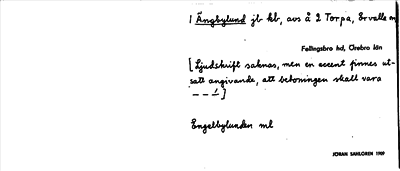 1 Ängbylund jb hb, avs å 2 Torpa, Ervalla
Fellingsbro hd, Örebro län
[Ljudskrift saknas, men en accent finnes ut-
satt angivande, att betoningen skall vara
– – –́ ]
Engelbylunden ml
JÖRAN SAHLGREN 1909